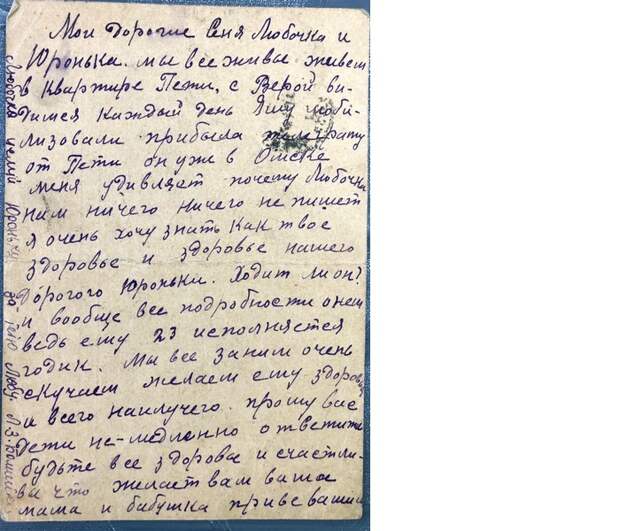 Мои дорогие Сеня Любочка и
Юронька. мы все живы живем
в квартире Пети, с Верой ви-
димся каждый день Яшу моби-
лизовали прибыла телеграту
от Пети он уже в Омске
меня удивляет почему Любочка
нам ничего ничего не пишет
я очень хочу знать как твое
здоровье и здоровье нашего
дорогого Юроньки. Ходит ли он?
и вообще все подробности о нем
ведь ему 23 исполняется
годик. Мы все за ним очень
скучаем желаем ему здоровья
и всего наилучего. прошу вас
дети не-медленно ответить
будьте все здоровы и счастли-
вы что желает вам ваша
мама и бабушка приве ваши
Любочка целуй Юроньку за